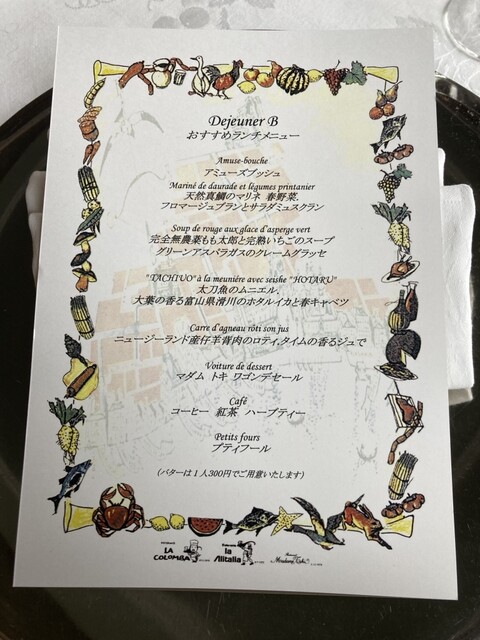 Dejeuner B
おすすめランチメニュー
Amuse-bouche
アミューズブッシュ
Mariné de daurade et légumes printanier
天然真鯛のマリネ 春野菜.
フロマージュブランとサラダミュスクラン
Soup de rouge aux glace d'asperge vert
完全無農薬もも太郎と完熟いちごのスープ
グリーンアスパラガスのクレームグラッセ
"TACHIUO" à la meunière avec seishe "HOTARU"
太刀魚のムニエル.
大葉の香る富山県滑川のホタルイカと春キャベツ
Carre d'agneau rôti son jus
ニュージーランド産仔羊背肉のロティ,タイムの香るジュで
Voiture de dessert
マダム トキ ワゴンデセール
Café
コーヒー 紅茶 ハーブティー
Petits fours
プティフール
(バターは1人300円でご用意いたします)
LA COLOMBA
la Alitalia
Madame Toki